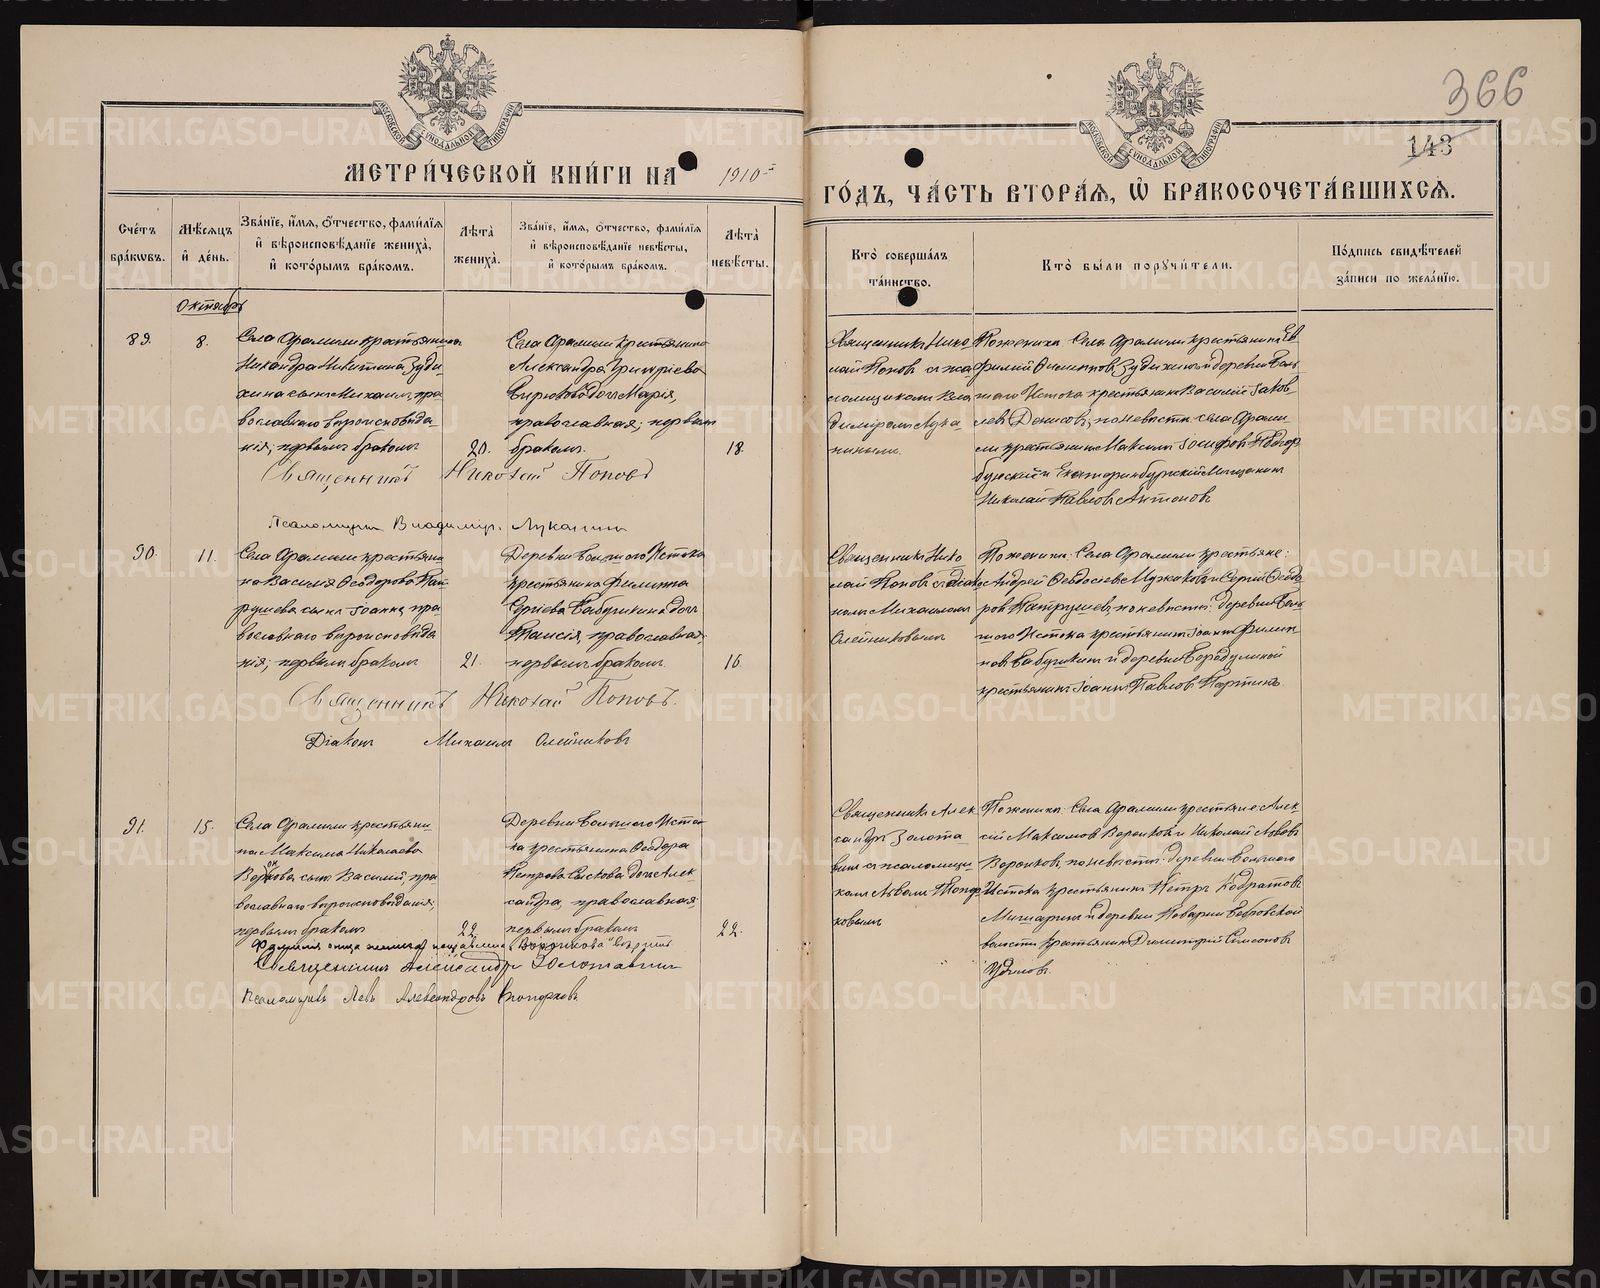 366
143
МОСКОВСКОЙ СѴНОДАЛЬНОЙ ТИПОГРАФІИ
МОСКОВСКОЙ СѴНОДАЛЬНОЙ ТИПОГРАФІИ
МЕТРИ́ЧЕСКОЙ КНИ́ГИ НА 1910-й
ГО́ДЪ, ЧА́СТЬ ВТОРА́Я, Ѡ҆ БРАКОСОЧЕТА́ВШИХСѦ.
Сче́тъ бра́кѡвъ.
Мѣ́сяцъ и҆ де́нь.
Зва́нїе, и҆́мя, ѻ҆́тчество, фами́лїя
и҆ вѣроисповѣ́данїе жениха̀,
и҆ кото́рымъ бра́комъ.
Лѣ́та жениха̀.
Зва́нїе, и҆́мя, ѻ҆́тчество, фами́лїя
и҆ вѣроисповѣ́данїе невѣ́сты,
и҆ кото́рымъ бра́комъ.
Лѣ́та невѣ́сты.
Кто̀ соверша́лъ
та́инство.
Кто̀ бы́ли порꙋчи́тели.
По́дпись свидѣ́телей
за́писи по жела́нїю.
Октябрь
89.
8.
Села Арамили крестьянина
Никандра Никитина Зуди-
хина сынъ Михаилъ, пра-
вославнаго вѣроисповѣда-
нія; первымъ бракомъ
20.
Села Арамили крестьянина
Александра Григоріева
Бирюкова дочь Марія,
православная; первымъ
бракомъ.
18.
Священникъ Нико-
лай Поповъ съ пса-
ломщикомъ Вла-
диміромъ Лука-
нинымъ.
По женихѣ: Села Арамили крестьянинъ
Филиповъ Зудихинъ и деревни Боль-
шого Истока крестьянинъ Василій Іаков-
левъ Денисовъ; по невѣстѣ: села Арами-
ли крестьянинъ Максимъ Іосифовъ
и Екатеринбургскій мѣщанинъ
Николай Павловъ Антоновъ
Священникъ Николай Поповъ
Псаломщикъ Владиміръ Луканинъ
90.
11.
Села Арамили крестьяни-
на Василія Ѳеодорова Пат-
рушева сынъ Іоаннъ, пра-
вославнаго вѣроисповѣда-
нія; первымъ бракомъ
21.
Деревни Большого Истока
крестьянина Филиппа
Сергіева Бабушкина дочь
Таисія, православная;
первымъ бракомъ.
16.
Священникъ Нико-
лай Поповъ съ діако-
номъ Михаиломъ
Олейниковымъ
По женихѣ: Села Арамили крестьяне:
Андрей Ѳеодосіевъ и Сергій Ѳеодо-
ровъ Патрушевъ; по невѣстѣ: деревни Боль-
шого Истока крестьянинъ Іоаннъ Филип-
повъ Бабушкинъ и деревни Бородулиной
крестьянинъ Іоаннъ Павловъ
Священникъ Николай Поповъ.
Діаконъ Михаилъ Олейниковъ
91.
15.
Села Арамили крестьяни-
на Максима Николаева
сынъ Василій, пра-
вославнаго вѣроисповѣданія;
первымъ бракомъ
22.
Деревни Большого Исто-
ка крестьянина Ѳеодора
Петрова Сыскова дочь Алек-
сандра, православная;
первымъ бракомъ
22.
Священникъ Алек-
сандръ Золота-
винъ съ псаломщи-
комъ Львомъ Топор-
ковымъ
По женихѣ: Села Арамили крестьяне Алек-
сій Максимовъ и Николай Львовъ
по невѣстѣ: деревни Большого
Истока крестьянинъ Петръ Кодратовъ
и деревни Бобровской
волости крестьянинъ Димитрій Симеоновъ
Фамилія отца жениха
Священникъ Александръ Золотавинъ
Псаломщикъ Левъ Александровъ Топорковъ
METRIKI.GASO-URAL.RU